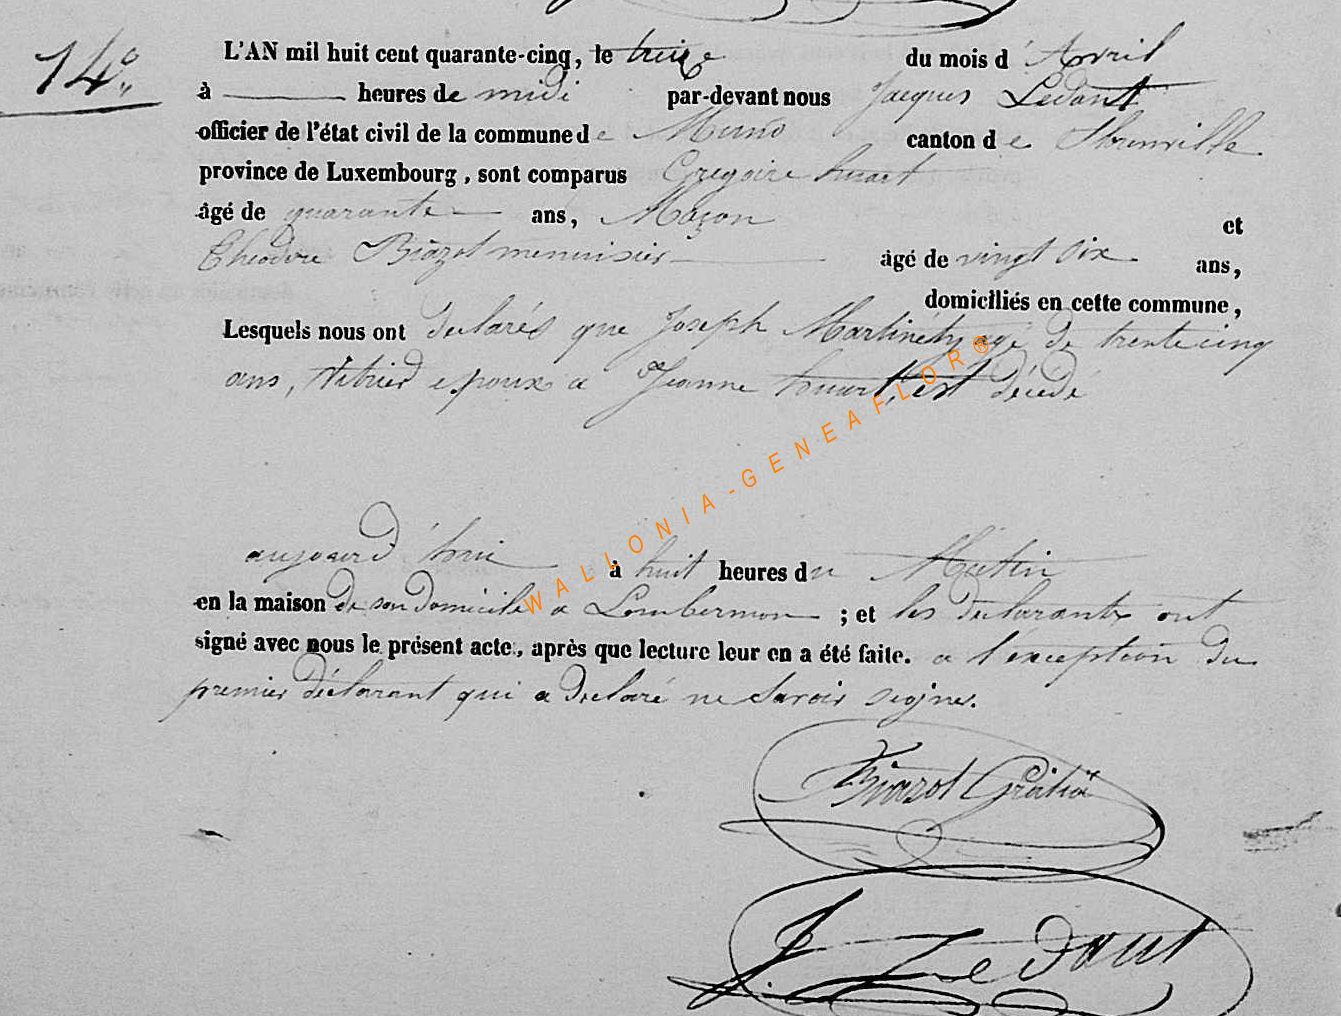 14°
L'AN mil huit cent quarante-cinq, le treize du mois d'Avril
à heures de midi par-devant nous Jacques Ledant
officier de l'état civil de la commune de Muno canton de Florenville
province de Luxembourg, sont comparus Gregoire huart
âgé de quarante ans, Maçon et
Théodore Biazot menuisier âgé de vingt six ans,
domiciliés en cette commune,
Lesquels nous ont declarés que Joseph Martinetty agé de trente cinq
ans, Vitrier epoux a Jeanne huart, est décédé
aujourd'hui à huit heures du Matin
en la maison de son domicile a Lambermon ; et les declarants ont
signé avec nous le présent acte, après que lecture leur en a été faite. a l'exception du
premier déclarant qui a declaré ne savoir signer.
Biazot
J. Ledant
WALLONIA-GENEAFLOR®